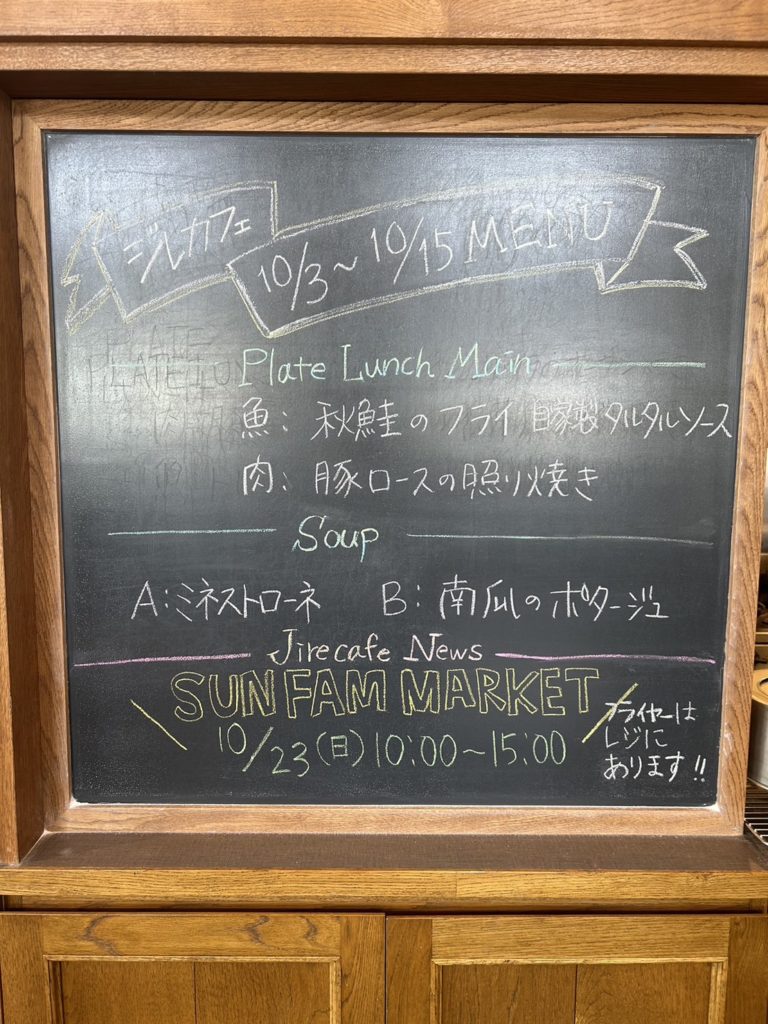 ジルカフェ
10/3〜10/15 MENU
Plate Lunch Main
魚: 秋鮭のフライ 自家製タルタルソース
肉: 豚ロースの照り焼き
Soup
A:ミネストローネ B: 南瓜のポタージュ
Jirecafe News
SUN FAM MARKET
10/23(日)10:00〜15:00
フライヤーは
レジに
あります!!